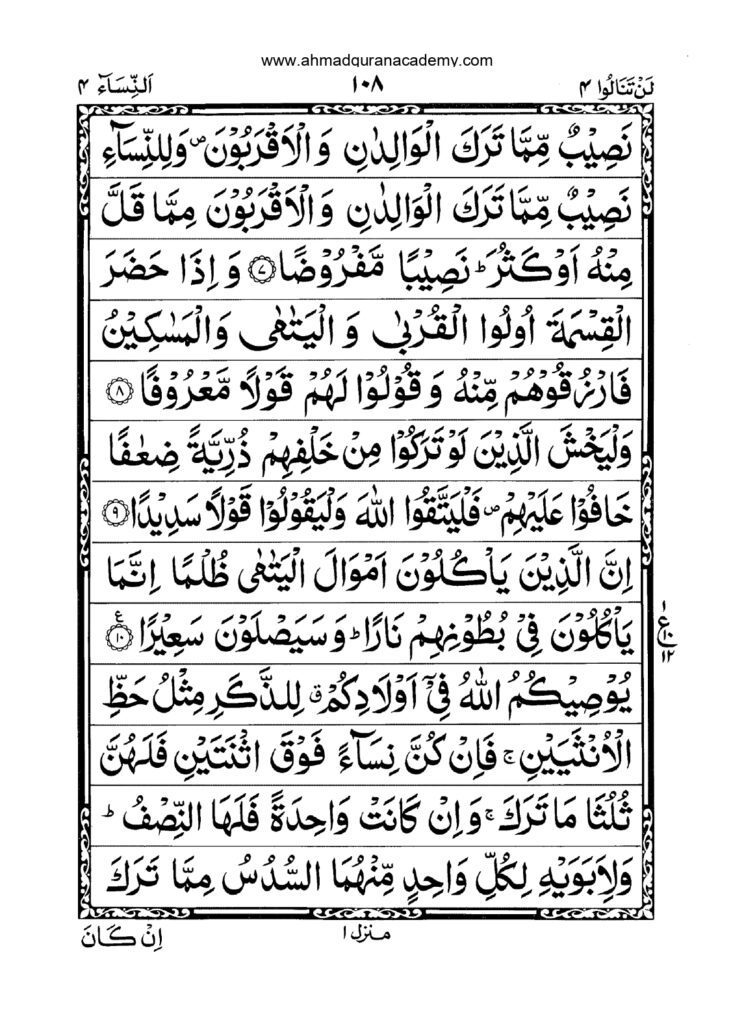 www.ahmadquranacademy.com
لَنْ تَنَالُوا ۴ ١٠٨ اَلنِّسَآء ۴
نَصِیْبٌ مِّمَّا تَرَكَ الْوَالِدٰنِ وَ الْاَقْرَبُوْنَ ۪ وَلِلنِّسَآءِ
نَصِیْبٌ مِّمَّا تَرَكَ الْوَالِدٰنِ وَ الْاَقْرَبُوْنَ مِمَّا قَلَّ
مِنْهُ اَوْ كَثُرَ ؕ نَصِیْبًا مَّفْرُوْضًا ۝۷ وَ اِذَا حَضَرَ
الْقِسْمَةَ اُولُوا الْقُرْبٰی وَ الْیَتٰمٰی وَ الْمَسٰكِیْنُ
فَارْزُقُوْهُمْ مِّنْهُ وَ قُوْلُوْا لَهُمْ قَوْلًا مَّعْرُوْفًا ۝۸
وَلْیَخْشَ الَّذِیْنَ لَوْ تَرَكُوْا مِنْ خَلْفِهِمْ ذُرِّیَّةً ضِعٰفًا
خَافُوْا عَلَیْهِمْ ۪ فَلْیَتَّقُوا اللّٰهَ وَلْیَقُوْلُوْا قَوْلًا سَدِیْدًا ۝۹
اِنَّ الَّذِیْنَ یَاْكُلُوْنَ اَمْوَالَ الْیَتٰمٰی ظُلْمًا اِنَّمَا
یَاْكُلُوْنَ فِیْ بُطُوْنِهِمْ نَارًا ؕ وَ سَیَصْلَوْنَ سَعِیْرًا ۝۱۰ ع
١ ع ١٠ ١٢
یُوْصِیْكُمُ اللّٰهُ فِیْۤ اَوْلَادِكُمْ ۗ لِلذَّكَرِ مِثْلُ حَظِّ
الْاُنْثَیَیْنِ ۚ فَاِنْ كُنَّ نِسَآءً فَوْقَ اثْنَتَیْنِ فَلَهُنَّ
ثُلُثَا مَا تَرَكَ ۚ وَ اِنْ كَانَتْ وَاحِدَةً فَلَهَا النِّصْفُ ؕ
وَلِاَبَوَیْهِ لِكُلِّ وَاحِدٍ مِّنْهُمَا السُّدُسُ مِمَّا تَرَكَ
منزل ١ اِنْ كَانَ